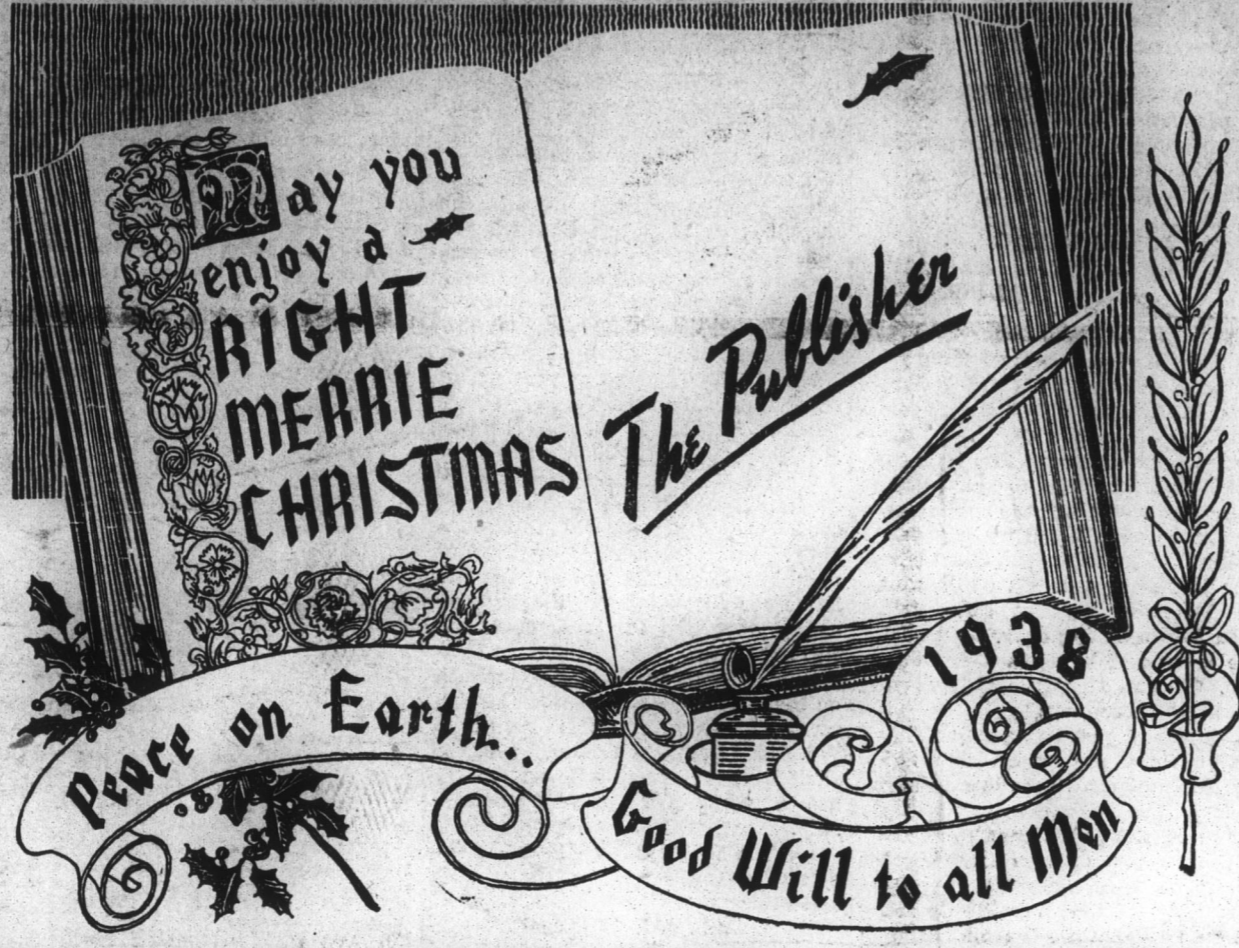 May you
enjoy a
RIGHT
MERRIE
CHRISTMAS
The Publisher
Peace on Earth...
1938
Good Will to all Men